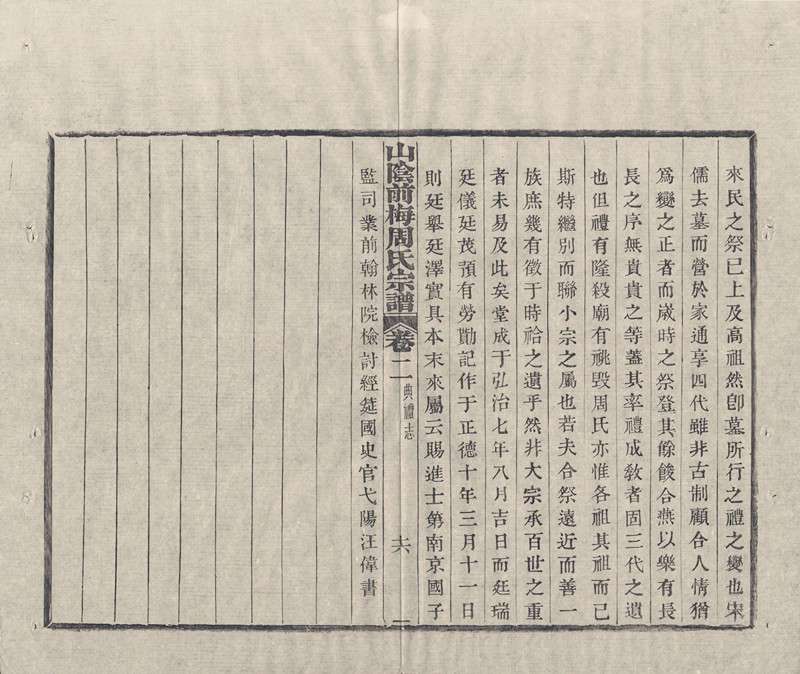 來民之祭已上及高祖然卽墓所行之禮之變也宋
儒去墓而營於家通享四代雖非古制顧合人情猶
爲變之正者而歲時之祭登其餘餕合燕以樂有長
長之序無貴貴之等蓋其率禮成敎者固三代之遺
也但禮有隆殺廟有祧毀周氏亦惟各祖其祖而已
斯特繼別而聯小宗之屬也若夫合祭遠近而善一
族庶幾有徵于時祫之遺乎然非大宗承百世之重
者未易及此矣堂成于弘治七年八月吉日而廷瑞
廷儀廷茂預有勞勩記作于正德十年三月十一日
則廷舉廷澤實具本末來屬云賜進士第南京國子
監司業前翰林院檢討經筵國史官弋陽汪偉書
山陰前梅周氏宗譜 卷二 典禮志 六 一